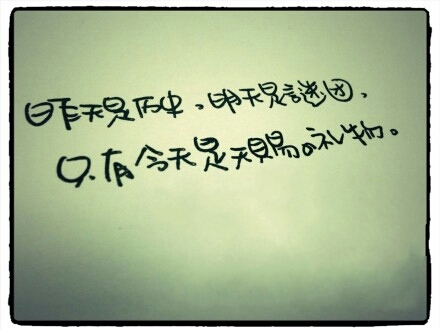 昨天是历史、明天是謎团、
只有今天是天賜的礼物。